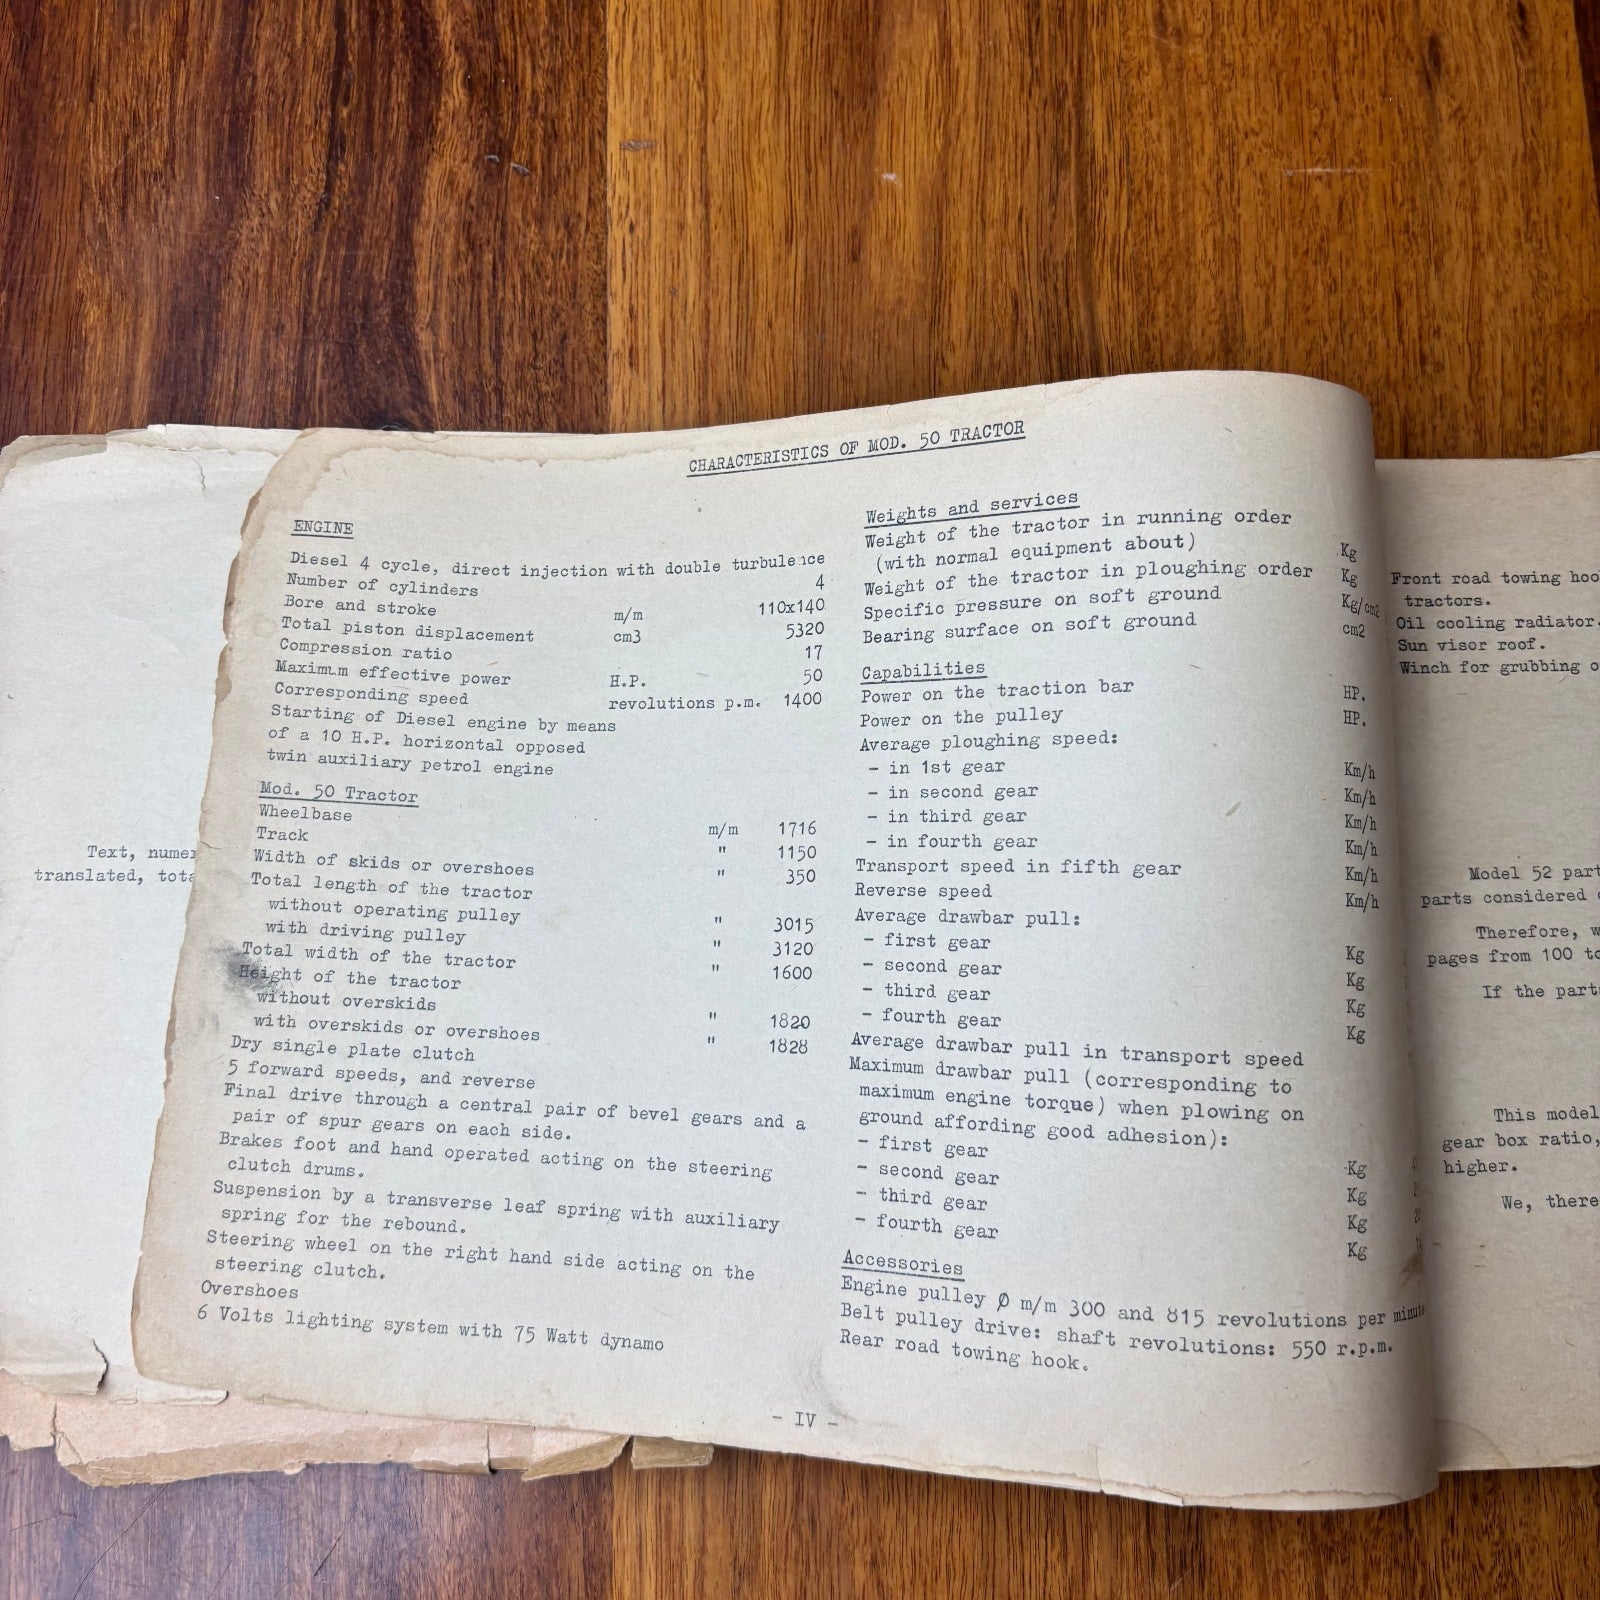 CHARACTERISTICS OF MOD. 50 TRACTOR
ENGINE
Diesel 4 cycle, direct injection with double turbulence
Number of cylinders 4
Bore and stroke m/m 110x140
Total piston displacement cm3 5320
Compression ratio 17
Maximum effective power H.P. 50
Corresponding speed revolutions p.m. 1400
Starting of Diesel engine by means
of a 10 H.P. horizontal opposed
twin auxiliary petrol engine
Mod. 50 Tractor
Wheelbase m/m 1716
Track " 1150
Width of skids or overshoes " 350
Total length of the tractor
without operating pulley " 3015
with driving pulley " 3120
Total width of the tractor " 1600
Height of the tractor
without overskids " 1820
with overskids or overshoes " 1828
Dry single plate clutch
5 forward speeds, and reverse
Final drive through a central pair of bevel gears and a
pair of spur gears on each side.
Brakes foot and hand operated acting on the steering
clutch drums.
Suspension by a transverse leaf spring with auxiliary
spring for the rebound.
Steering wheel on the right hand side acting on the
steering clutch.
Overshoes
6 Volts lighting system with 75 Watt dynamo
Weights and services
Weight of the tractor in running order
(with normal equipment about) Kg
Weight of the tractor in ploughing order Kg
Specific pressure on soft ground Kg/cm2
Bearing surface on soft ground cm2
Capabilities
Power on the traction bar HP.
Power on the pulley HP.
Average ploughing speed:
- in 1st gear Km/h
- in second gear Km/h
- in third gear Km/h
- in fourth gear Km/h
Transport speed in fifth gear Km/h
Reverse speed Km/h
Average drawbar pull:
- first gear Kg
- second gear Kg
- third gear Kg
- fourth gear Kg
Average drawbar pull in transport speed
Maximum drawbar pull (corresponding to
maximum engine torque) when plowing on
ground affording good adhesion):
- first gear Kg
- second gear Kg
- third gear Kg
- fourth gear Kg
Accessories
Engine pulley Ø m/m 300 and 815 revolutions per minute
Belt pulley drive: shaft revolutions: 550 r.p.m.
Rear road towing hook.
- IV -
Text,
translated,
Front road towing
tractors.
Oil cooling radiator.
Sun visor roof.
Winch for grubbing
Model 52
parts considered
Therefore,
pages from 100
If the
This model
gear box ratio,
higher.
We,